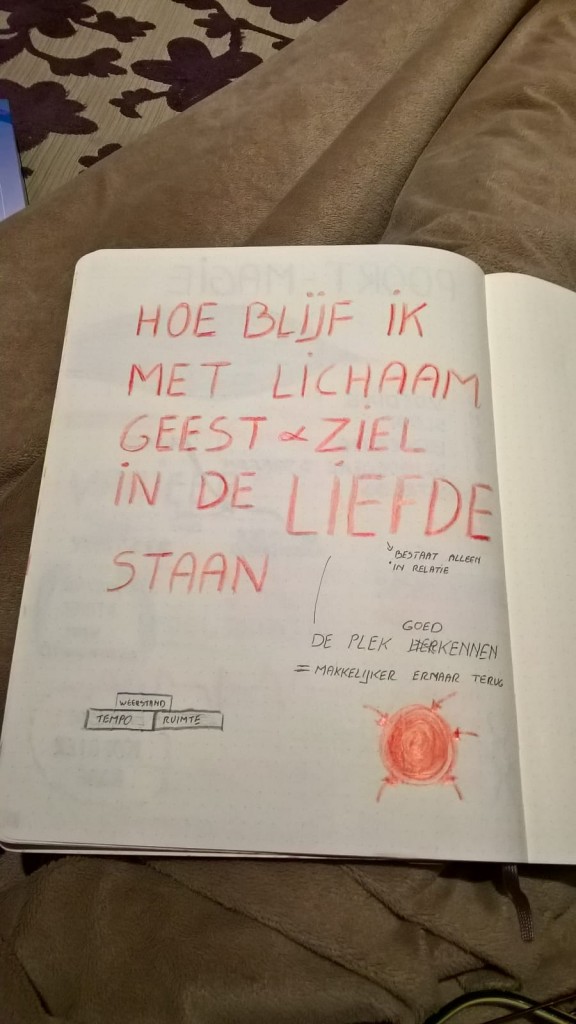 HOE BLIJF IK
MET LICHAAM
GEEST & ZIEL
IN DE LIEFDE
STAAN
BESTAAT ALLEEN
IN RELATIE
GOED
DE PLEK HERKENNEN
= MAKKELIJKER ERNAAR TERUG
WEERSTAND
TEMPO RUIMTE
POORT-MAGIE